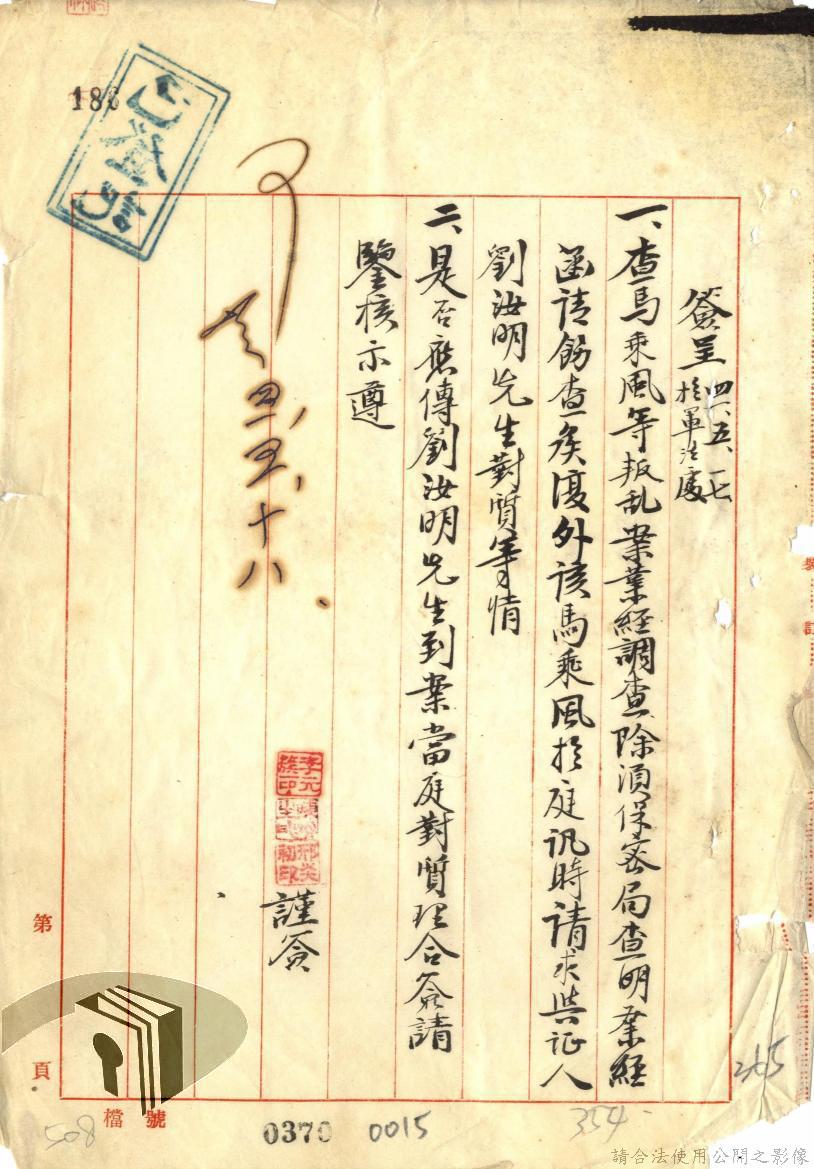 簽呈 四六、五、一七
於軍法處
一、查馬乘風等叛乱案業經調查除須保密局查明業經
函請飭查矦復外該馬乘風於庭訊時請求與証人
劉汝明先生對質等情
二、是否應傳劉汝明先生到案當庭對質理合簽請
鑒核示遵
謹簽
可
五、十八、
186
第
頁
檔號
0370
0015
354
265
508
請合法使用公開之影像